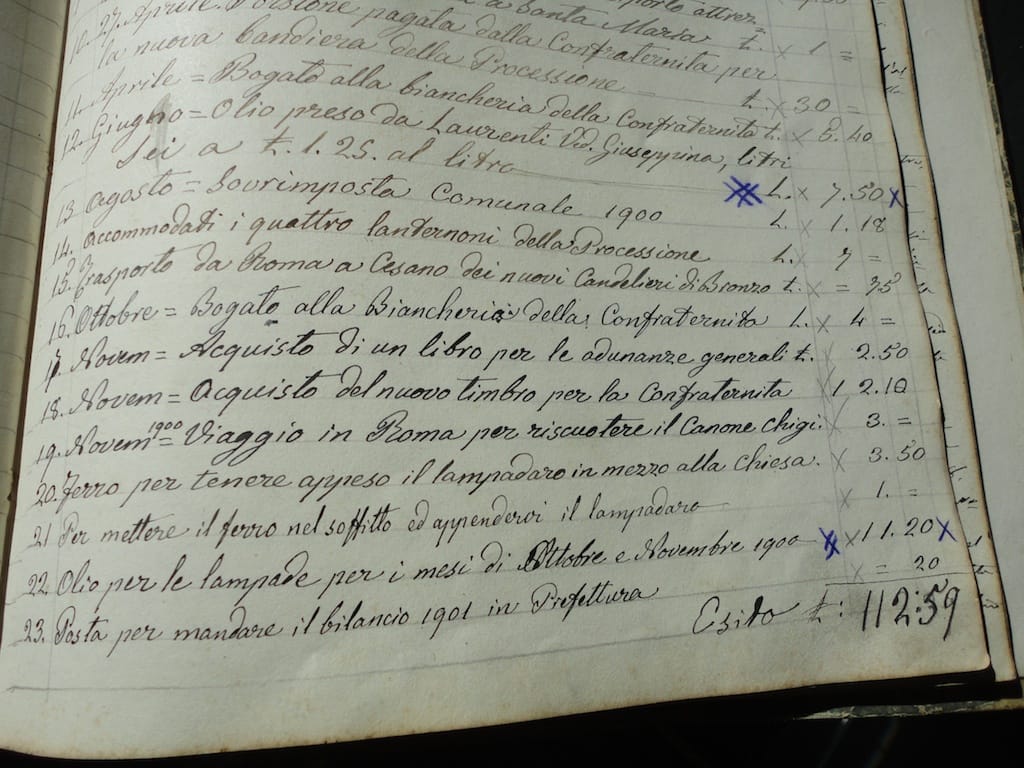 a Santa Maria £. × 1 =
10. 27. Aprile. Porzione pagata dalla Confraternita per
la nuova bandiera della Processione £. × 30 =
11. Aprile = Bogato alla biancheria della Confraternita £. × 8. 40
12. Giugno = Olio preso da Laurenti Ved. Giuseppina, litri
sei a £. 1. 25. al litro L. × 7.50 ×
13 Agosto = Sovrimposta Comunale 1900 L. × 1. 18
14. Accommodati i quattro lanternoni della Processione L. 7 =
15. Trasporto da Roma a Cesano dei nuovi Candelieri di Bronzo £. × = 35
16. Ottobre = Bogato alla Biancheria della Confraternita L. × 4 =
17. Novem = Acquisto di un libro per le adunanze generali £. × 2.50
18. Novem = Acquisto del nuovo timbro per la Confraternita × 12.10
19. Novem 1900 = Viaggio in Roma per riscuotere il Canone Chigi. × 3. =
20. Ferro per tenere appeso il lampadaro in mezzo alla Chiesa. × 3. 50
21 Per mettere il ferro nel soffitto ed appendervi il lampadaro × 1. =
22 Olio per le lampade per i mesi di Ottobre e Novembre 1900 × 11.20 ×
23. Posta per mandare il bilancio 1901 in Prefettura × = 20
Esito £: 112:59